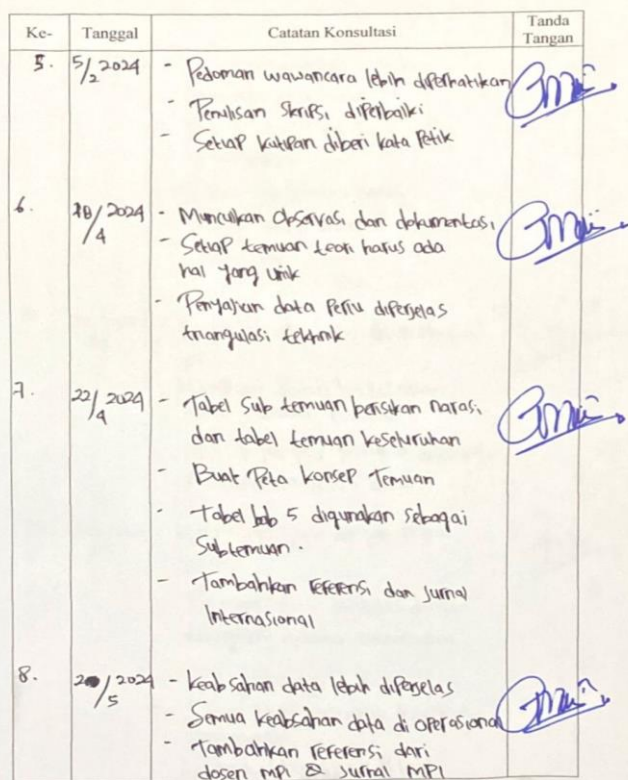 Ke- Tanggal Catatan Konsultasi Tanda Tangan
5. 5/2 2024 - Pedoman wawancara lebih diperhatikan
- Penulisan skripsi diperbaiki
- Setiap kutipan diberi kata petik
6. 18/4 2024 - Munculkan observasi dan dokumentasi
- Setiap temuan teori harus ada
hal yang unik
- Penyajian data perlu diperjelas
triangulasi teknik
7. 22/4 2024 - Tabel sub temuan berisikan narasi
dan tabel temuan keseluruhan
- Buat Peta konsep Temuan
- Tabel bab 5 digunakan sebagai
Subtemuan.
- Tambahkan referensi dan jurnal
Internasional
8. /5 2024 - Keabsahan data lebih diperjelas
- Semua keabsahan data di operasional
- Tambahkan referensi dari
dosen MPI & jurnal MPI